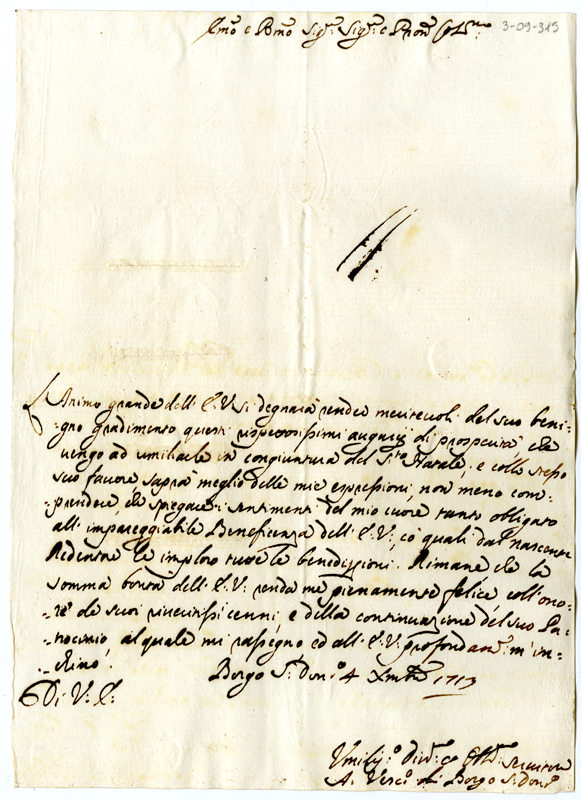 Emo e Rmo Sig.r Sig.r e Pron Col.mo
3-09-315
L'Animo grande dell'E.V. si degnarà render meritevoli del suo beni-
-gno gradimento questi rispettosissimi augurij di prosperità, che
vengo ad umiliarle in congiuntura del S.to Natale, e collo stesso
suo favore saprà meglio delle mie espressioni, non meno com-
-prendere, che spiegare i sentimenti del mio cuore tanto obligato
all'impareggiabile Beneficenza dell'E.V., co quali dal nascente
Redentore le imploro tutte le benedizzioni. Rimane che la
somma bontà dell'E.V. renda me pienamente felice coll'ono-
-re de suoi cenni, e della continuazione del suo Pa-
-trocinio, al quale mi rassegno ed all'E.V. profondam.e m'in-
-chino.
Borgo S. Don.o 4 Xmbre 1713
Di V. E.
Umiliss.o div.o Obl.
A. Vesc.o di Borgo S. Don.o